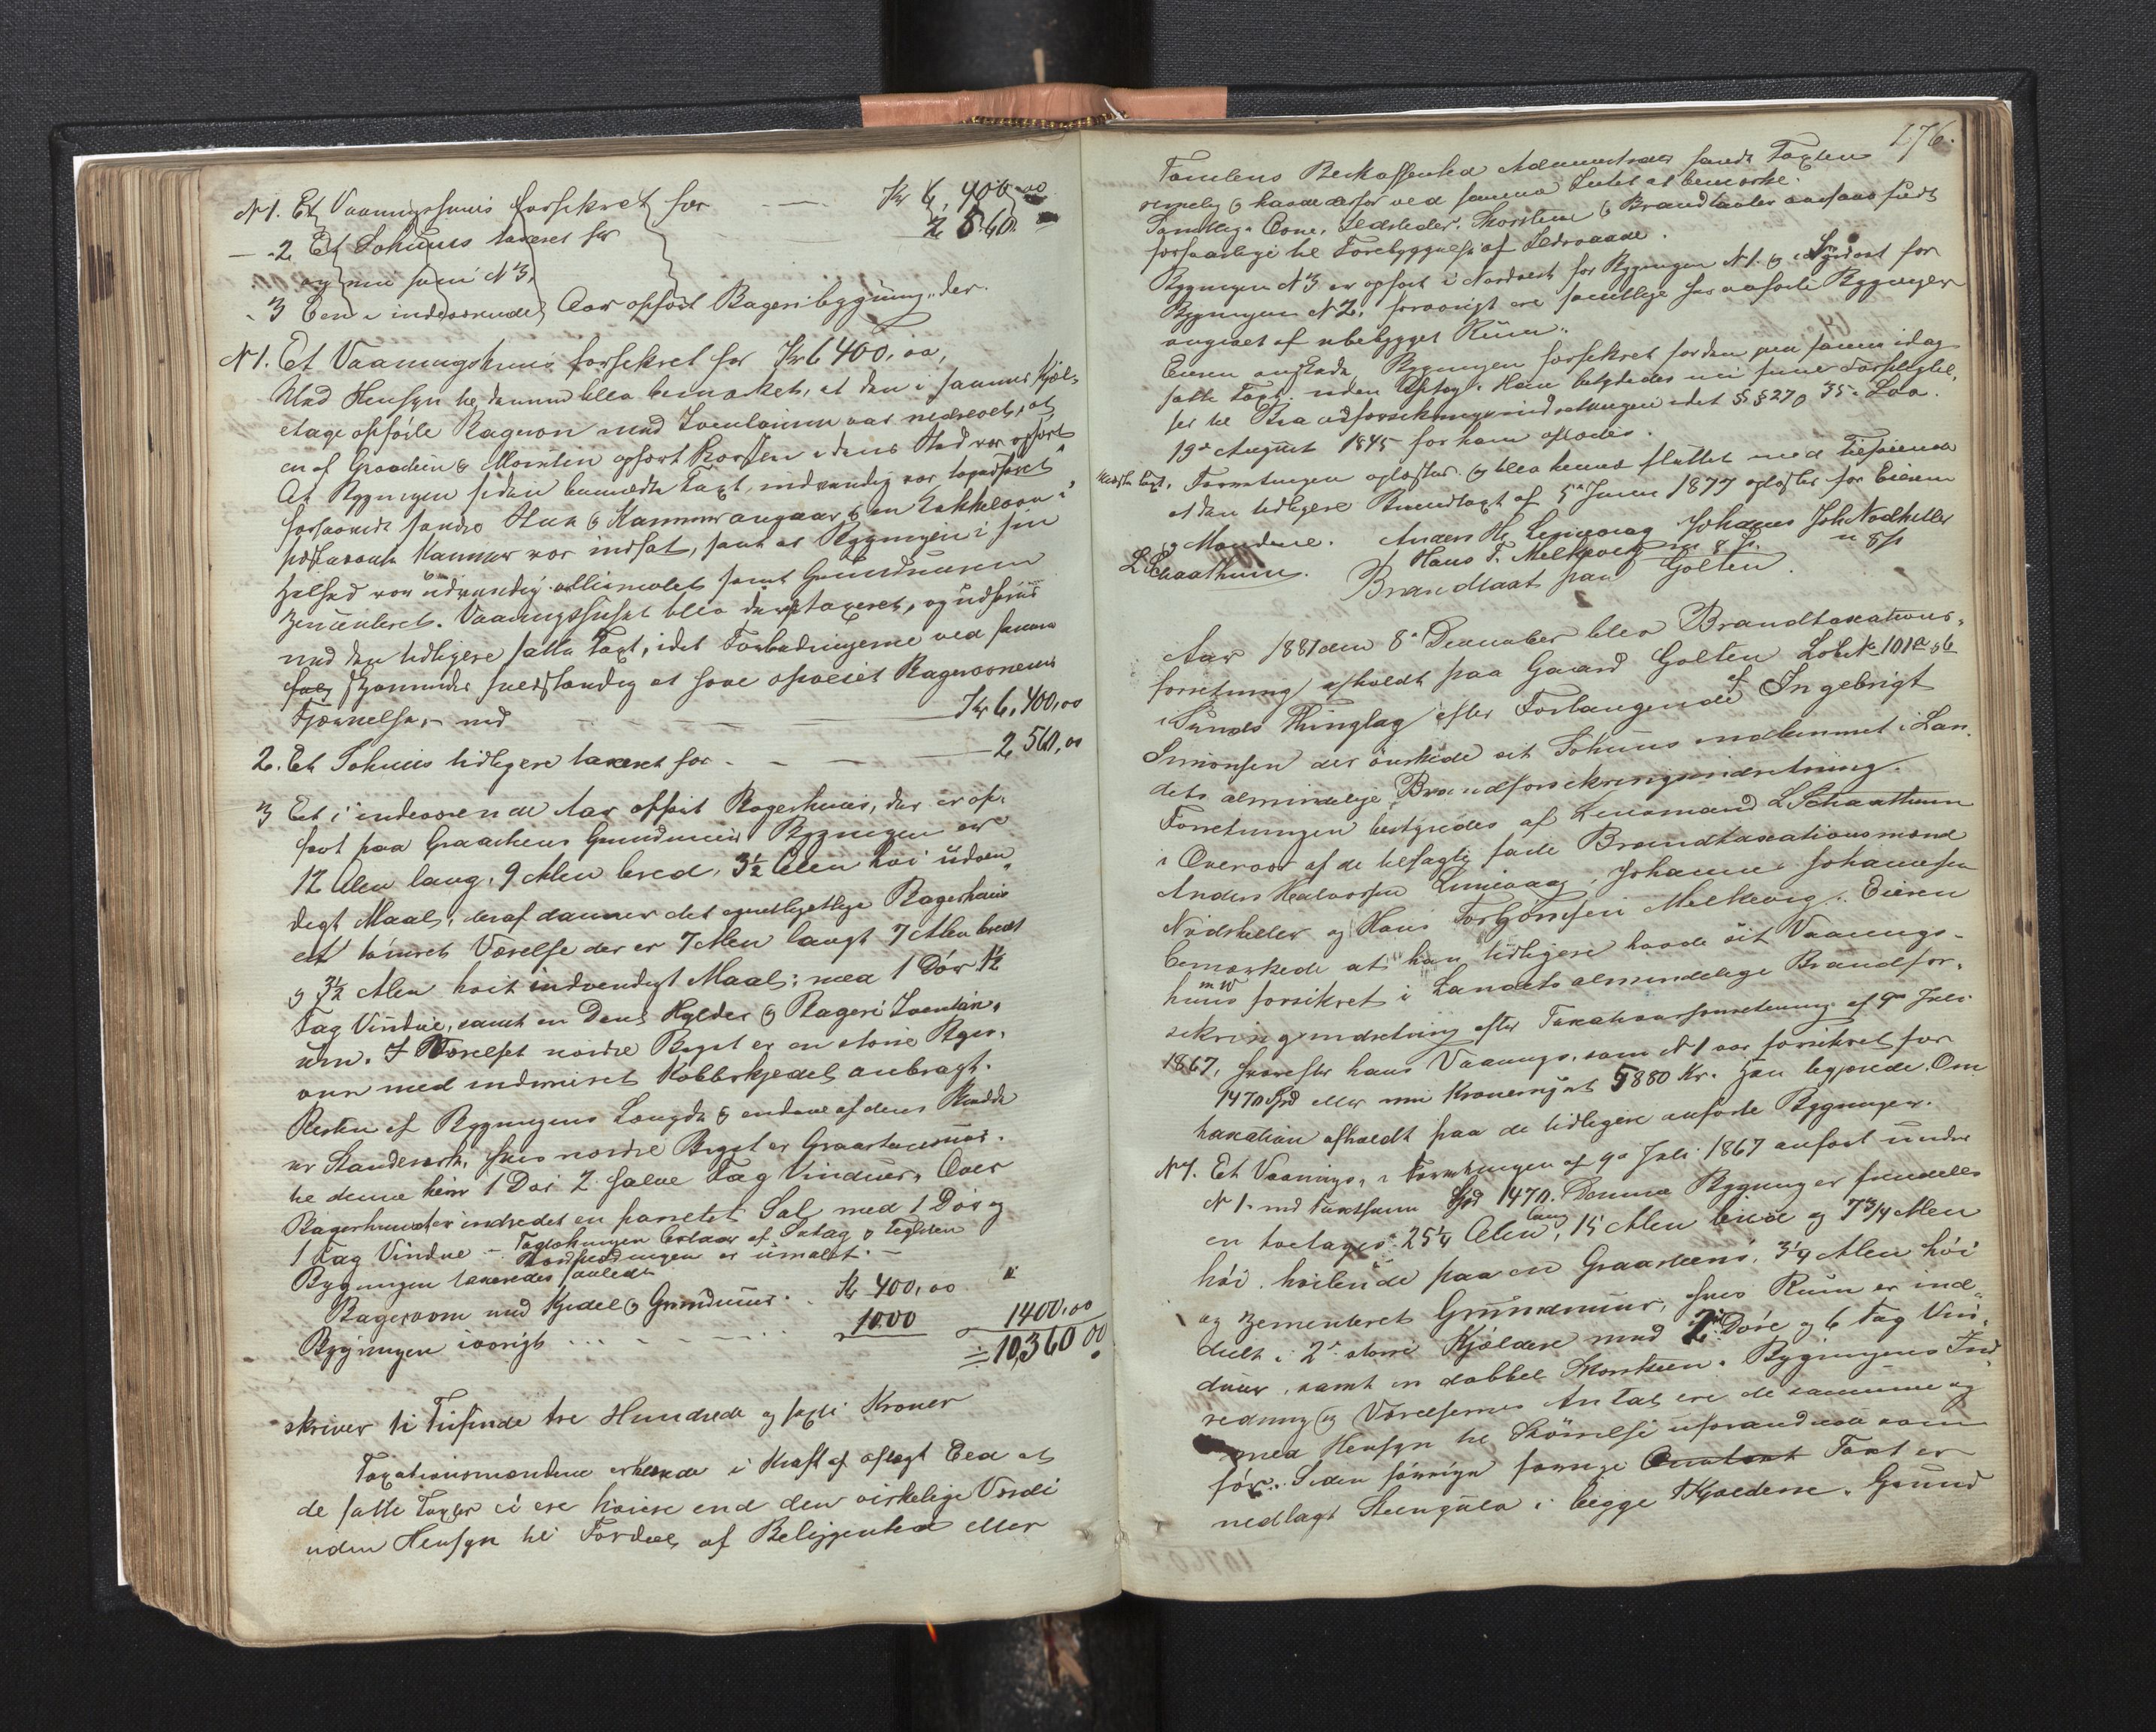 N 1. Et Vaaningshuus forsikret for Kr 6,400,00
- 2. Et Sohuus taxeret for 2560.
og nu som N 3,
- 3 Een i indeværende Aar opført Bageribygning, der.
N 1. Et Vaaningshuus forsikret for Kr 6400,00,
Med Hensyn til denne blev bemærket, at den i sammes Kjæl-
etage opførte Bagerovn med Inventarium var nedrevet, at
en af Graasteen & Mursten opført Skorsten i dens Sted var opført
At Bygningen siden bemeldte Taxt, indvendig var tapetseret
forsaavidt søndre Stue & Kammer angaar & en Kakkelovn i
sidstnævnte Kammer var indsat, samt at Bygningen i sin
Helhed var udvendig oliemalet samt Grundmuren
Zementeret. Vaaningshuset blev derfor taxeret, og udføres
med den tidligere satte Taxt, idet Forbedringerne ved samme
skjønnedes fuldstændig at have opveiet Bagerovnens
Fjærnelse, med Kr 6,400,00
2. Et Sohuus tidligere taxeret for - - - 2560,00
3 Et i indeværende Aar opført Bagerhuus, der er op-
ført paa Graasteens Grundmuur Bygningen er
12 Alen lang, 9 Alen bred, 3½ Alen høi udven-
digt Maal, deraf danner det egentligetlige Bagerhuus
et tømret Værelse der er 7 Alen langt 7 Alen bredt
& 3½ Alen høit indvendigt Maal; med 1 Dør 1½
Fag Vindue, samt en Deel Hylder & Bageri Inventari-
um. I Værelset nordre Bygt er en større Bager-
ovn med indmuret Kobberkjedel anbragt.
Resten af Bygningens Længde & endeel af dens Bredde
er Standværk, hvis nordre Bygt er Graasteensmuur.
til denne hører 1 Dør 2 halve Fag Vinduer. Over
Bagerhuuset er indredet en panelet Sal med 1 Dør og
1 Fag Vindue - Taglækningen bestaar af Sutag & Teglsten
Bordklædningen er umalet. -
Bygningen taxeredes saaledes
Bagerovn med Kjedel & Grundmuur. Kr 400,00
Bygningen iøvrigt ... - - - 1000 1400,00
= 10,360 00
skriver ti Tusinde tre Hundrede og sexti Kroner
Taxationsmændene erklærede i Kraft af aflagt Eed at
de satte Taxter ei ere høiere end den virkelige Værdi
uden Hensyn til Fordeel af Beliggenhed eller
276.
Tomtens Beskaffenhed Administrator fandt Taxten
rimelig & havde derfor ved samme Intet at bemærke.
Samtlige Ovne, Ildsteder, Skorstene & Brandtavler ansaaes fuldt
forsvarlige til Forebyggelse af Ildsvaade.
Bygningen N 3 er opført i Nordvest for Bygningen N 1. & i Sydost for
Bygningen N 2, forøvrigt ere samtlige her anførte Bygninger
omgivet af ubebygget Rum.
Eieren ønskede Bygningen forsikret for den paa samme idag
satte Taxt. uden Afslag. Han betydedes nu sine Forpligtel-
ser til Brandforsikringsindretningen idet §§ 27 & 35 i Lov.
19de August 1845 for ham oplæstes.
Næste Taxt. Forretningen oplæstes & blev hermed sluttet med Tilføiende
at den tidligere Brandtaxt af 5te Juni 1877 oplæstes for Eieren
& Mændene. Anders H. Lerøvaag Johanes Joh. Nodheller
L Schaathuun. Hans T. Melkevig m 8 P. m 8 P
Brandtaxt paa Golten.
Aar 1881 den 8de Desember blev Brandtaxations-
forretning afholdt paa Gaard Golten Løbe No 101 a & b
i Sunds Thinglag efter Forlangende af Ingebrigt
Simonsen der ønskede sit Sohuus indlemmet i Lan-
dets almindelige Brandforsikringsindretning.
Forretningen bestyredes af Lensmand L Schaathun
i Overvær af de tilsagte faste Brandtaxationsmænd
Anders Halvorsen Lerøvaag, Johannes Johannesen
Nodheller og Hans Torbjørnsen Melkevig. Eieren
bemærkede at han tidligere havde sit Vaanings-
huus m. v. forsikret i Landets almindelige Brandfor-
sikringsindretning efter Taxationsforretning af 9de Juli
1867, hvorefter hans Vaanings. som N 1 var forsikret for
1470 Spd eller nu i Kronemynt 5880 Kr. Han begjærede Om-
taxation afholdt paa de tidligere anførte Bygninger.
N 1. Et Vaanings. i Forretningen af 9de Juli 1867 anført under
N 1. med Taxtsum Spd 1470. Denne Bygning er fremdeles
en toetages. 25¼ Alen lang, 15 Alen bred og 7¾ Alen
høi. hvilende paa en Graasteens, 3¼ Alen høi
og Zementeret Grundmuur, hvis Rum er ind-
delt i 2de større Kjældere med 2de Døre og 6 Fag Vin-
duer, samt en dobbel Skorsteen. Bygningens Ind-
redning og Værelsernes Antal ere de samme og
med Hensyn til Størrelse uforandrede som
før. Siden forrige Taxt er
nedlagt Steengulv i begge Kjældere. Grund